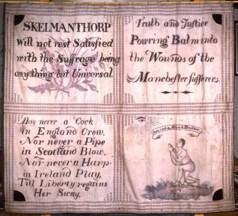 SKELMANTHORP
Will not rest Satisfied
with the Suffrage being
anything but Universal
Truth and Justice
Pouring Balm into
the Wounds of the
Manchester Sufferers
May never a Cock
in England Crow,
Nor never a Pipe
in Scotland Blow,
Nor never a Harp
in Ireland Play,
Till Liberty regains
Her Sway.